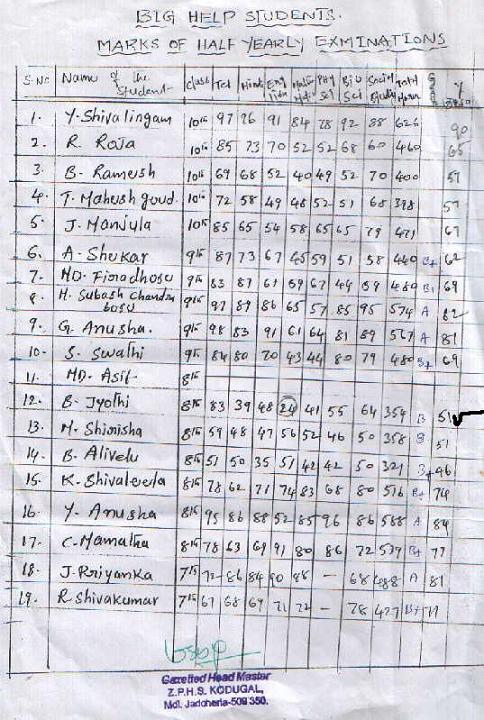 BIG HELP STUDENTS.
MARKS OF HALF YEARLY EXMINATIONS
S.No Name of the Student Class Tel Hindi English Maths Phy Sci Bio Sci Social Total %
1. Y. Shivalingam 10th 97 96 91 84 78 92 88 626 90
2. R. Raja 10th 85 73 70 52 52 68 60 460 65
3. B. Ramesh 10th 69 68 52 40 49 52 70 400 57
4. T. Mahesh goud. 10th 72 58 49 48 52 51 68 398 57
5. J. Manjula 10th 85 65 54 58 65 65 79 471 67
6. A. Shekar 9th 87 73 67 45 59 51 58 440 B+ 62
7. MD. Firadhosu 9th 83 87 61 59 67 44 69 480 B+ 69
8. H. Subash chandra bosu 9th 97 89 86 65 57 85 95 574 A 82
9. G. Anusha. 9th 98 83 91 61 64 81 89 567 A 81
10. S. Swathi 9th 84 80 70 43 44 80 79 480 B+ 69
11. MD. Asif 8th
12. B. Jyothi 8th 83 39 48 24 41 55 64 354 B 51
13. M. Shirisha 8th 59 48 47 56 52 46 50 358 B 51
14. B. Alivelu 8th 51 50 35 51 42 42 50 321 46
15. K. Shivaleela 8th 78 62 71 74 83 68 80 516 B+ 74
16. Y. Anusha 8th 95 86 88 52 85 96 86 588 A 84
17. C. Mamatha 8th 78 63 69 91 80 86 72 539 B+ 77
18. J. Priyanka 7th 72 86 84 90 88 - 68 488 A 81
19. R Shivakumar 7th 67 68 69 71 72 - 78 427 B+ 71
Gazetted Head Master
Z.P.H.S. KODUGAL,
Mdl. Jadcherla-509 350.